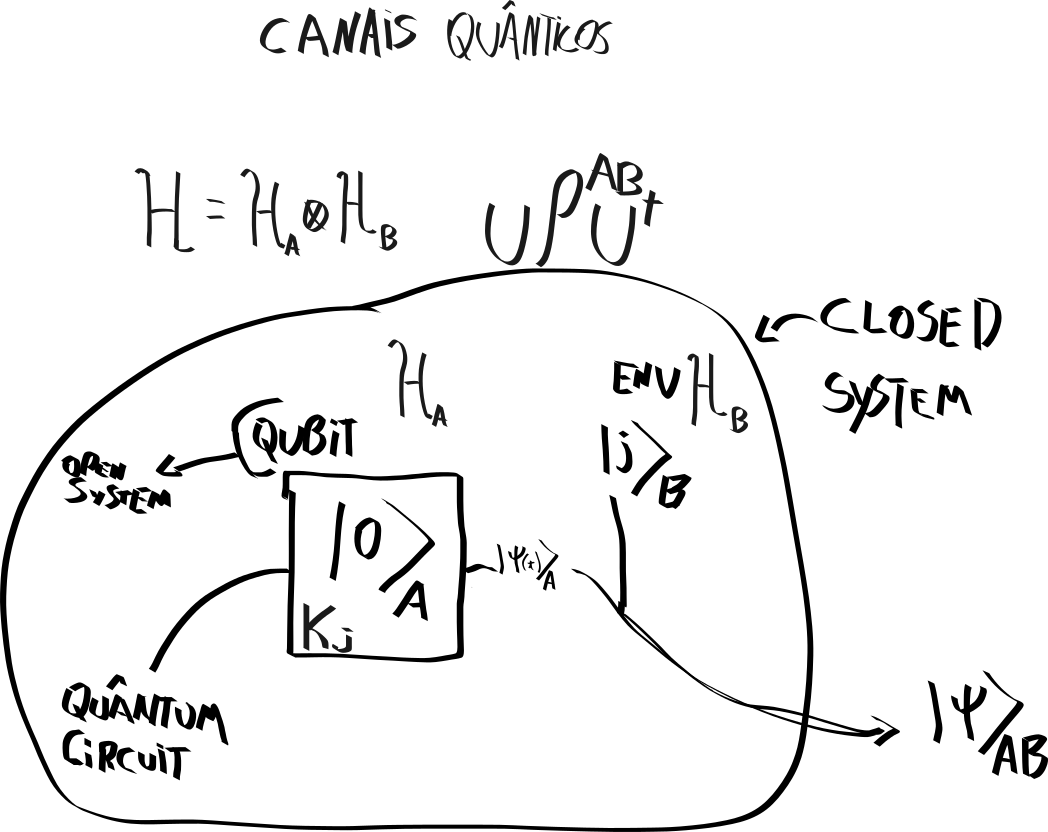 CANAIS QUÂNTICOS
H = H_A ⊗ H_B
UρᴬᴮU†
CLOSED
SYSTEM
H_A
ENV H_B
QUBIT
|j⟩_B
OPEN
SYSTEM
|0⟩_A
K_j
|ψ(t)⟩_A
QUÂNTUM
CIRCUIT
|Ψ⟩_AB